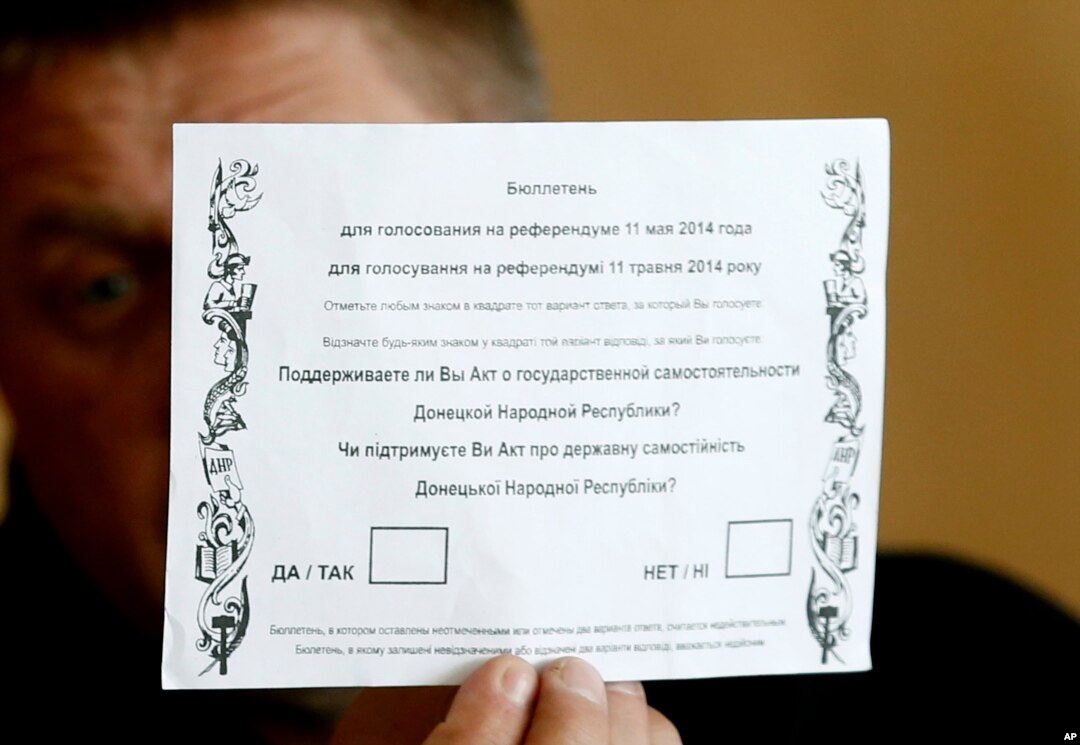 Бюллетень
для голосования на референдуме 11 мая 2014 года
для голосування на референдумі 11 травня 2014 року
Отметьте любым знаком в квадрате тот вариант ответа, за который Вы голосуете:
Відзначте будь-яким знаком у квадраті той варіант відповіді, за який Ви голосуєте:
Поддерживаете ли Вы Акт о государственной самостоятельности
Донецкой Народной Республики?
Чи підтримуєте Ви Акт про державну самостійність
Донецької Народної Республіки?
ДНР
ДНР
ДА / ТАК
НЕТ / НІ
Бюллетень, в котором оставлены неотмеченными или отмечены два варианта ответа, считается недействительным
Бюлетень, в якому залишені невідзначеними або відзначені два варіанти відповіді, вважається недійсним
AP